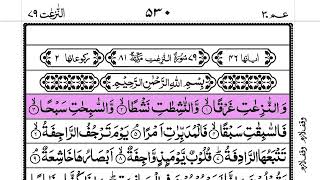 عمّ ٣٠ ٥٣٠ النّٰزعٰت ٧٩
اٰیاتها ٤٦ ٧٩ سورة النّٰزعٰت مكّیّة ٨١ ركوعاتها ٢
بِسْمِ اللّٰهِ الرَّحْمٰنِ الرَّحِيْمِ
وَالنّٰزِعٰتِ غَرْقًا ۙ﴿١﴾ وَّالنّٰشِطٰتِ نَشْطًا ۙ﴿٢﴾ وَّالسّٰبِحٰتِ سَبْحًا ۙ﴿٣﴾
فَالسّٰبِقٰتِ سَبْقًا ۙ﴿٤﴾ فَالْمُدَبِّرٰتِ اَمْرًا ۘ﴿٥﴾ يَوْمَ تَرْجُفُ الرَّاجِفَةُ ۙ﴿٦﴾
تَتْبَعُهَا الرَّادِفَةُ ۗ﴿٧﴾ قُلُوْبٌ يَّوْمَىِٕذٍ وَّاجِفَةٌ ۙ﴿٨﴾ اَبْصَارُهَا خَاشِعَةٌ ۘ﴿٩﴾
وقف لازم
وقف لازم